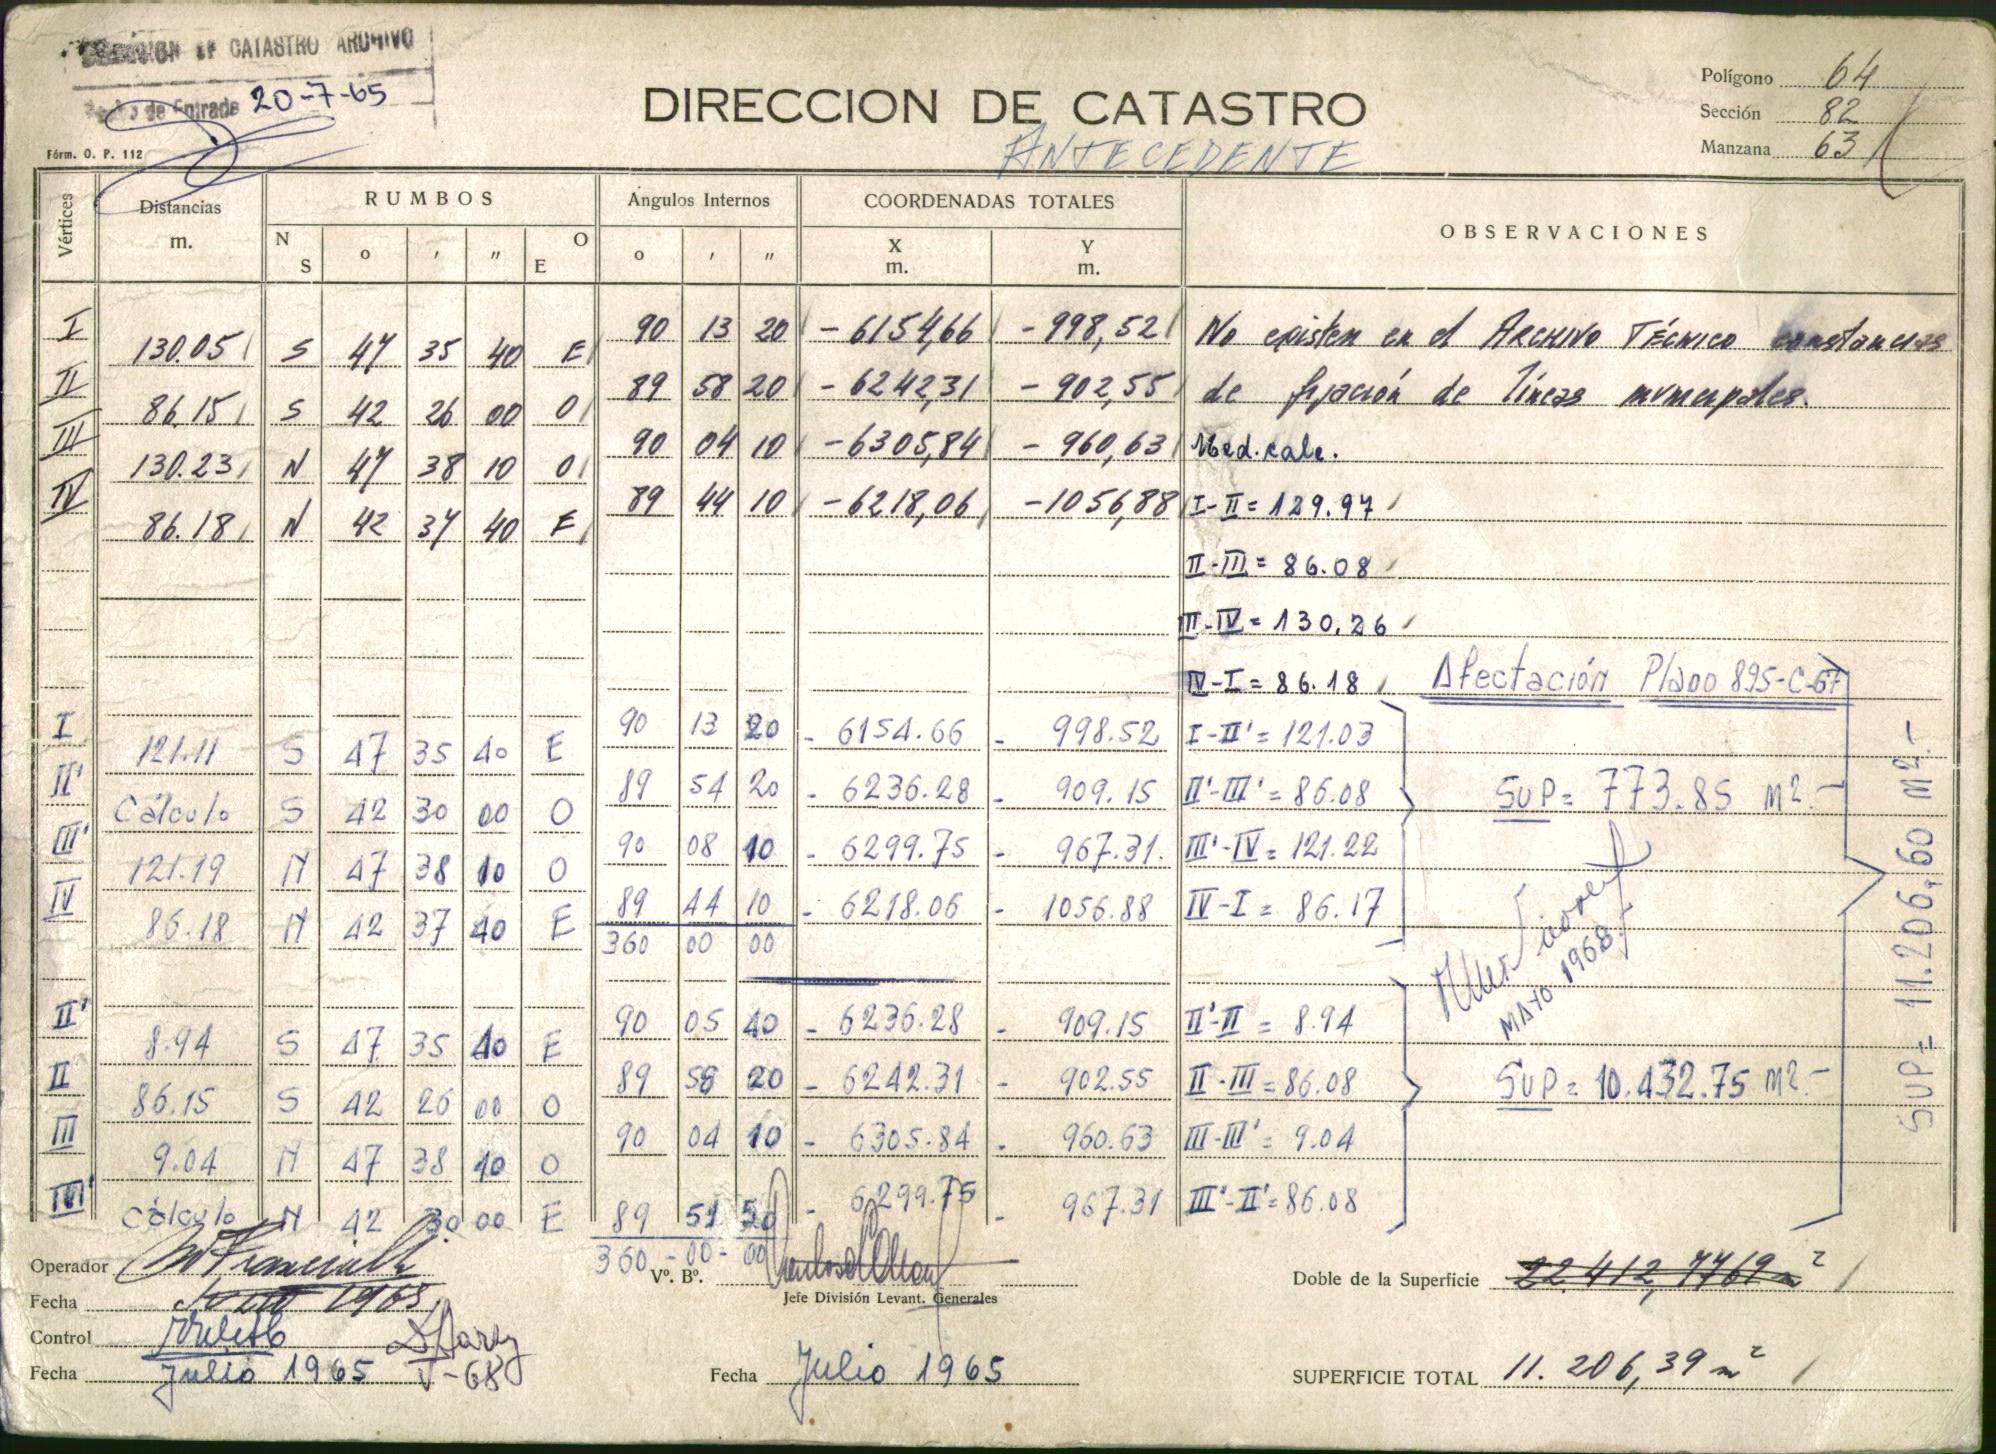 DIRECCION DE CATASTRO ARCHIVO
Fecha de Entrada 20-7-65
Fórm. O. P. 112
DIRECCION DE CATASTRO
ANTECEDENTE
Polígono 64
Sección 82
Manzana 63
Vértices
Distancias m.
RUMBOS
N S o ' " O E
Angulos Internos
o ' "
COORDENADAS TOTALES
X m. Y m.
OBSERVACIONES
I 90 13 20 -6154,66 -998,52 No existen en el ARCHIVO TÉCNICO constancias
130.05 S 47 35 40 E
II 89 58 20 -6242,31 -902,55 de fijación de líneas municipales.
86.15 S 42 26 00 O
III 90 04 10 -6305,84 -960,63 Med. calc.
130.23 N 47 38 10 O
IV 89 44 10 -6218,06 -1056,88 I-II = 129.97
86.18 N 42 37 40 E
II-III = 86.08
III-IV = 130,26
IV-I = 86.18 Afectación Plano 895-C-67
I 90 13 20 - 6154.66 - 998.52 I-II' = 121.03
121.11 S 47 35 40 E
II' 89 54 20 - 6236.28 - 909.15 II'-III' = 86.08 SUP= 773.85 m2.-
Cálculo S 42 30 00 O
III' 90 08 10 - 6299.75 - 967.31. III'-IV = 121.22
121.19 N 47 38 10 O
IV 89 44 10 - 6218.06 - 1056.88 IV-I = 86.17
86.18 N 42 37 40 E
360 00 00
MAYO 1968
SUP= 11.206,60 m2.-
II' 90 05 40 - 6236.28 - 909.15 II'-II = 8.94
8.94 S 47 35 40 E
II 89 58 20 - 6242.31 - 902.55 II-III = 86.08 SUP= 10.432.75 m2.-
86.15 S 42 26 00 O
III 90 04 10 - 6305.84 - 960.63 III-III' = 9.04
9.04 N 47 38 10 O
III' 89 51 50 - 6299.75 - 967.31 III'-II' = 86.08
Cálculo N 42 30 00 E
360-00-00
Operador
Fecha 1965
Control
Fecha Julio 1965 V-68
Vº. Bº.
Jefe División Levant. Generales
Fecha Julio 1965
Doble de la Superficie 22.412,7769 m²
SUPERFICIE TOTAL 11.206,39 m²